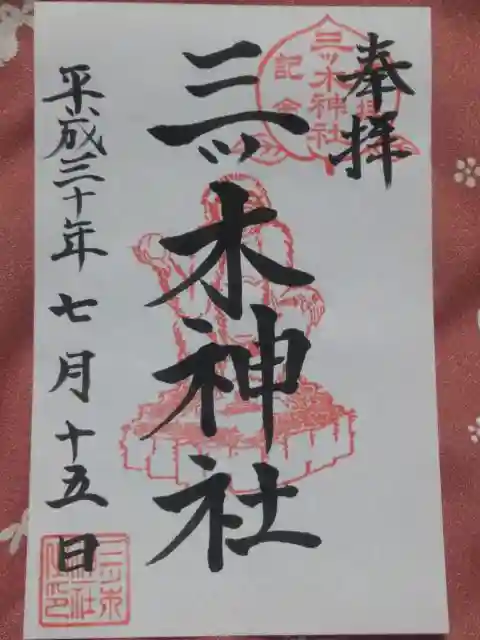 奉拝
三ッ木神社
平成三十年七月十五日
三ッ木神社
記念